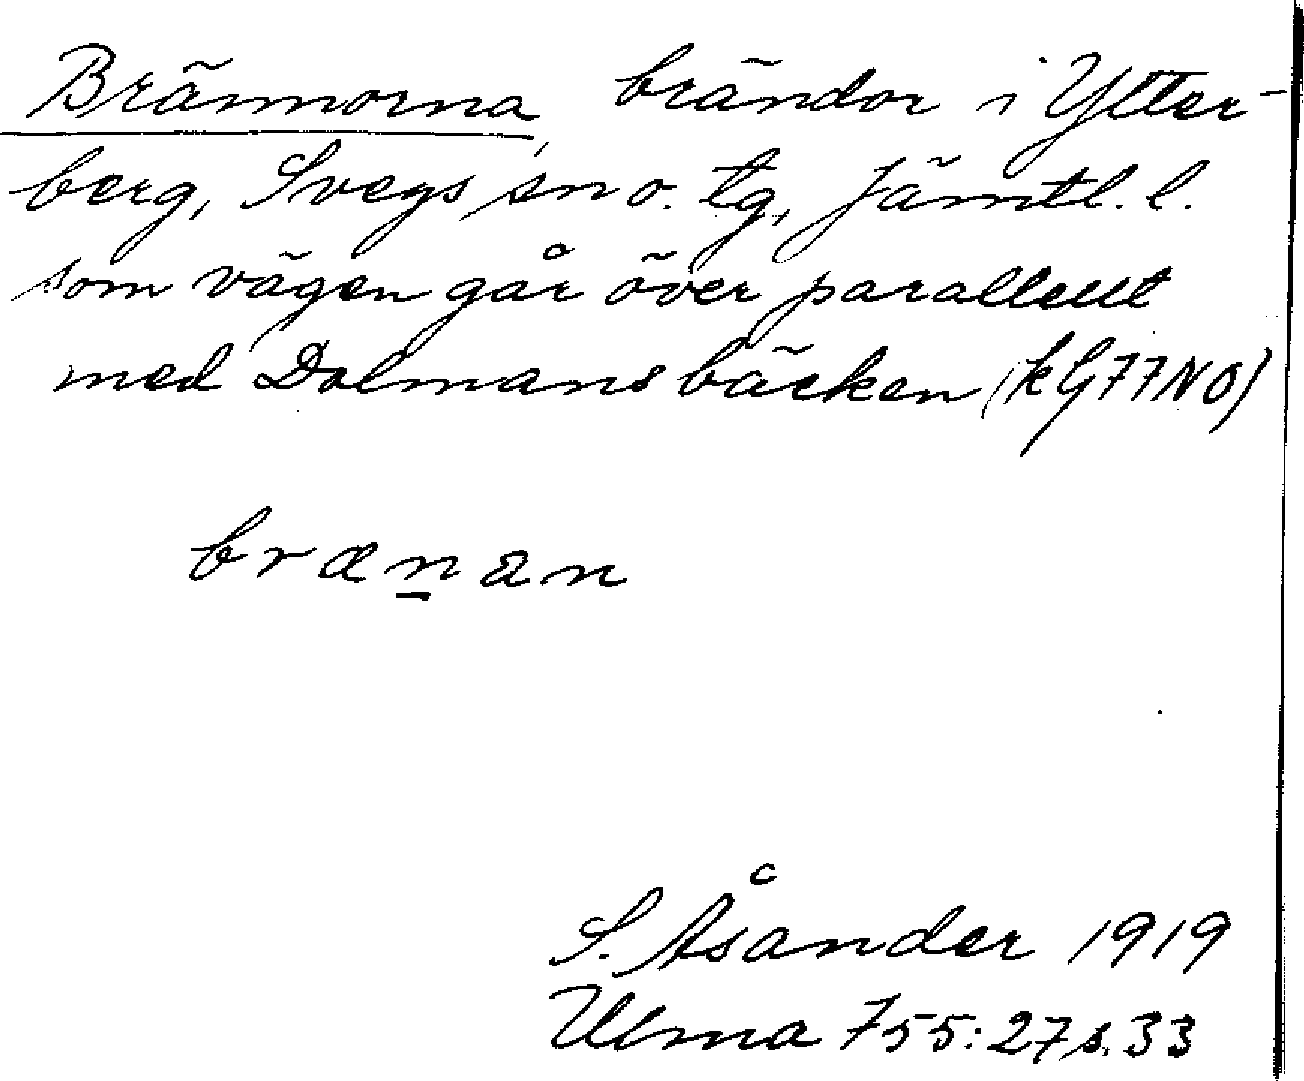 Brännorna, brändor i Ytter-
berg, Svegs sn o. tg, Jämtl. l.
som vägen går över parallellt
med Dolmansbäcken (k G77NO)
bræn̲an
S. Åsander 1919
Ulma 755:27 s. 33